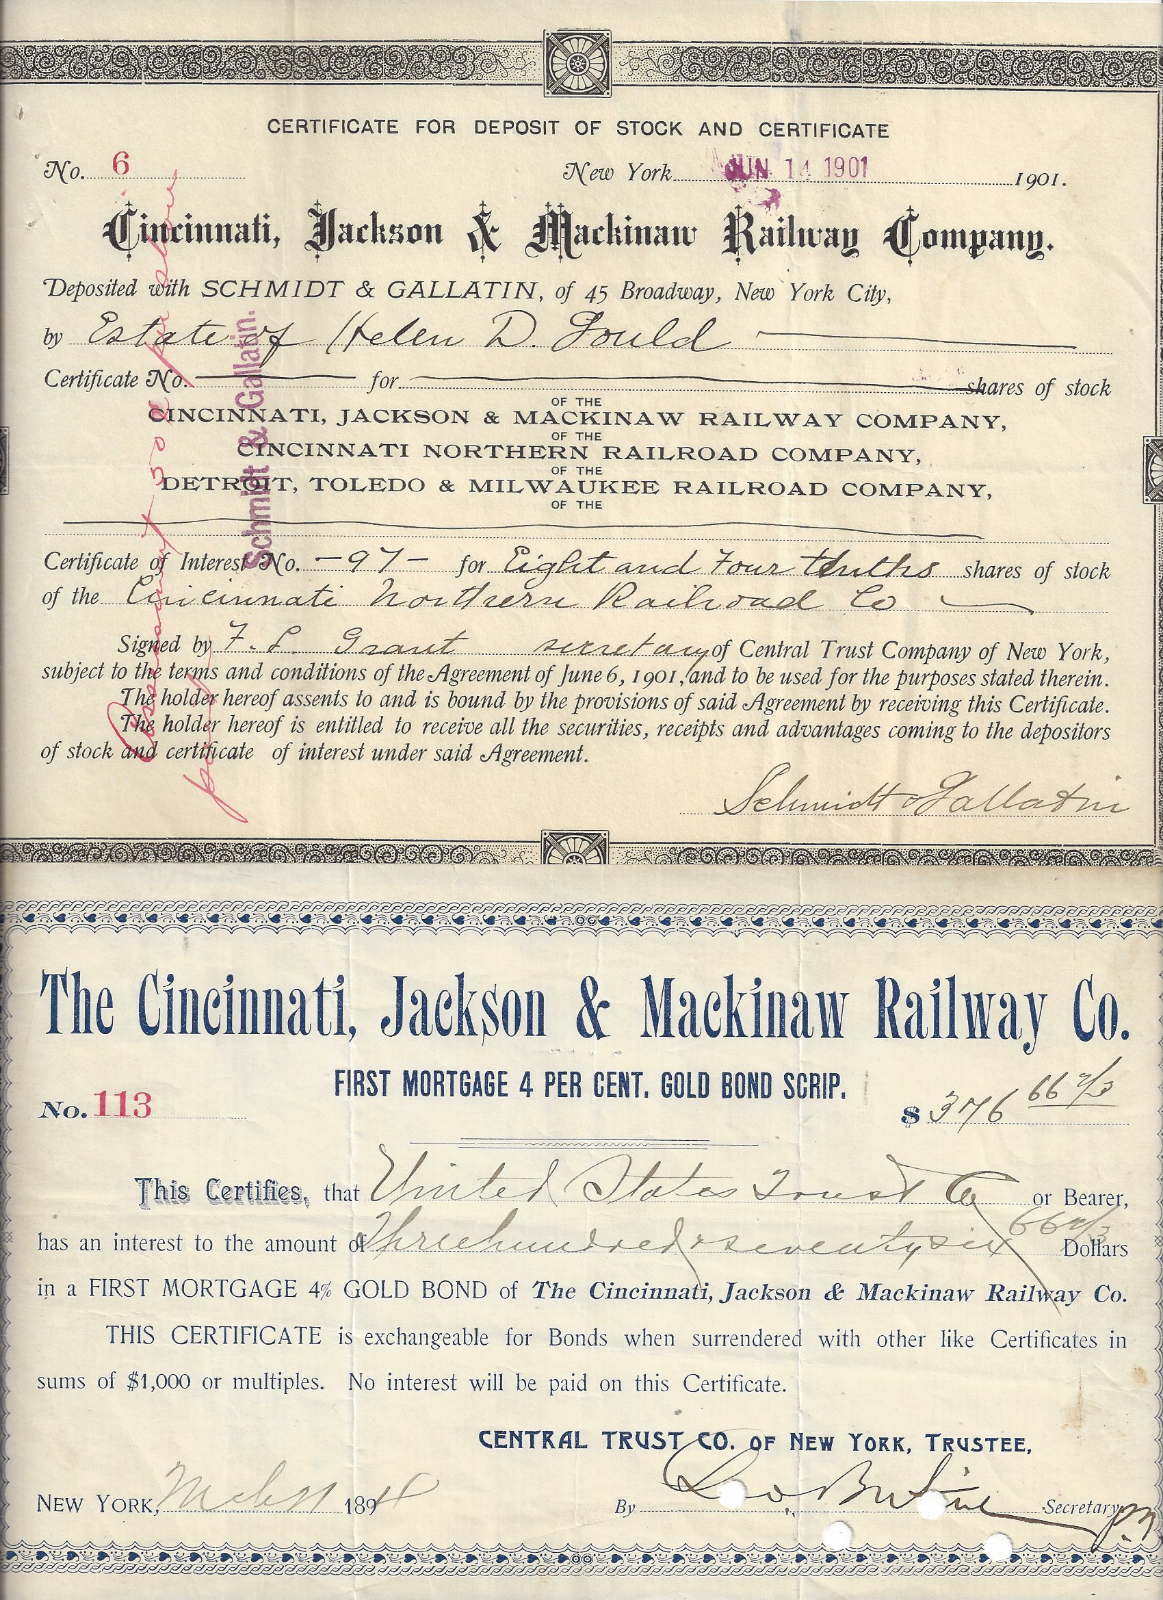 CERTIFICATE FOR DEPOSIT OF STOCK AND CERTIFICATE
No. 6 New York JUN 14 1901 1901.
Cincinnati, Jackson & Mackinaw Railway Company.
Deposited with SCHMIDT & GALLATIN, of 45 Broadway, New York City,
by Estate of Helen D. Gould
Certificate No. for shares of stock
OF THE
CINCINNATI, JACKSON & MACKINAW RAILWAY COMPANY,
OF THE
CINCINNATI NORTHERN RAILROAD COMPANY,
OF THE
DETROIT, TOLEDO & MILWAUKEE RAILROAD COMPANY,
OF THE
Certificate of Interest No. -97- for Eight and Four tenths shares of stock
of the Cincinnati Northern Railroad Co
Signed by F. L. Grant secretary of Central Trust Company of New York,
subject to the terms and conditions of the Agreement of June 6, 1901, and to be used for the purposes stated therein.
The holder hereof assents to and is bound by the provisions of said Agreement by receiving this Certificate.
The holder hereof is entitled to receive all the securities, receipts and advantages coming to the depositors
of stock and certificate of interest under said Agreement.
Schmidt & Gallatin
Schmidt & Gallatin.
Assessment 50¢ per share
paid
The Cincinnati, Jackson & Mackinaw Railway Co.
FIRST MORTGAGE 4 PER CENT. GOLD BOND SCRIP.
No. 113 $ 376 66 2/3
This Certifies, that United States Trust Co or Bearer,
has an interest to the amount of Three hundred & seventy six 66 2/3 Dollars
in a FIRST MORTGAGE 4% GOLD BOND of The Cincinnati, Jackson & Mackinaw Railway Co.
THIS CERTIFICATE is exchangeable for Bonds when surrendered with other like Certificates in
sums of $1,000 or multiples. No interest will be paid on this Certificate.
CENTRAL TRUST CO. OF NEW YORK, TRUSTEE,
NEW YORK, 189
By Secretary